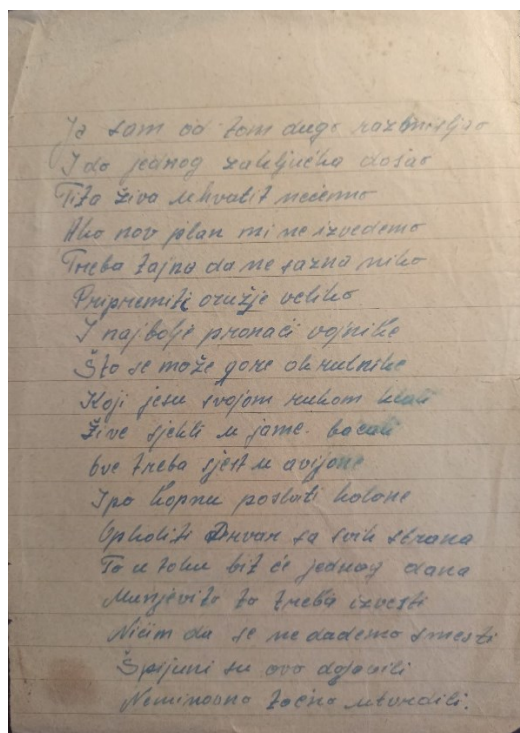 Ja sam od tom dugo razmisljao
I do jednog zaključka došao
Tita živa uhvatit nećemo
Ako nov plan mi ne izvedemo
Treba tajna da ne sazna niko
Pripremiti oružje veliko
I najbolje pronaći vojnike
Što se može gore okrutnike
Koji jesu svojom rukom klali
Žive sjekli u jame bacali
Sve treba sjest u avijone
I po kopnu poslati kolone
Opkoliti Drvar sa svih strana
To u toku bit će jednog dana
Munjevito to treba izvesti
Ničim da se ne dademo smesti
Špijuni su ovo dojavili
Neminovno tačno utvrdili.